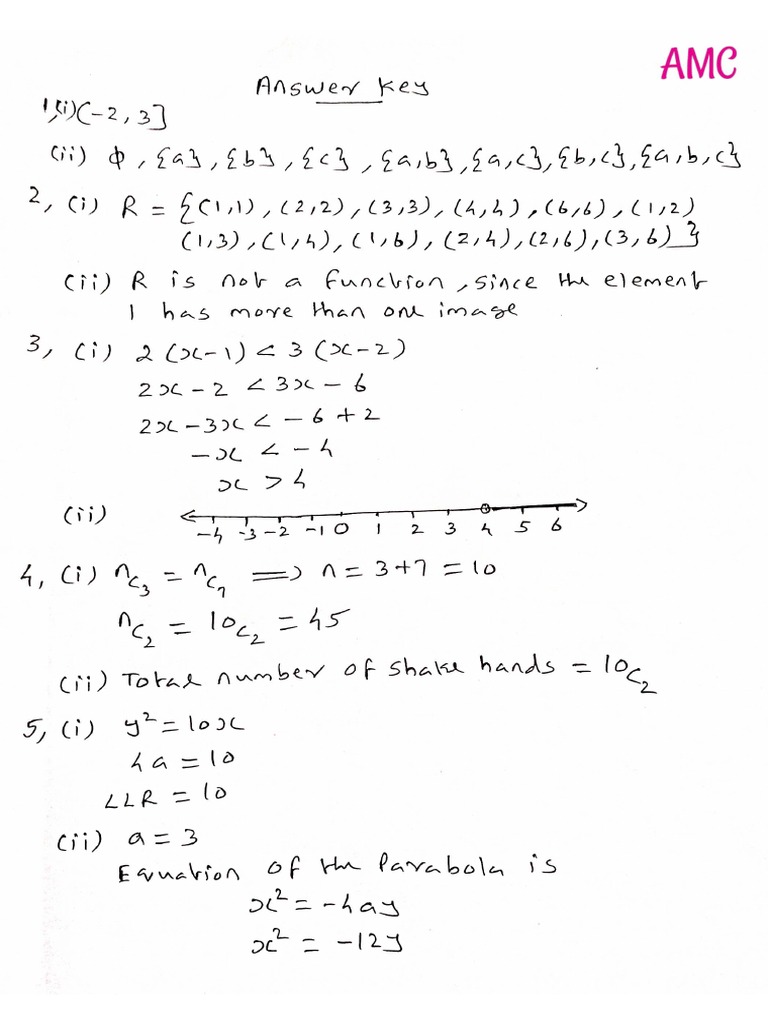 AMC
Answer Key
1, (i) (-2, 3]
(ii) ϕ, {a}, {b}, {c}, {a,b}, {a,c}, {b,c}, {a,b,c}
2, (i) R = {(1,1), (2,2), (3,3), (4,4), (6,6), (1,2)
(1,3), (1,4), (1,6), (2,4), (2,6), (3,6)}
(ii) R is not a function, since the element
1 has more than one image
3, (i) 2(x-1) < 3(x-2)
2x - 2 < 3x - 6
2x - 3x < -6 + 2
-x < -4
x > 4
(ii)
-4 -3 -2 -1 0 1 2 3 4 5 6
4, (i) nC3 = nC7 ⟹ n = 3+7 = 10
nC2 = 10C2 = 45
(ii) Total number of shake hands = 10C2
5, (i) y² = 10x
4a = 10
LLR = 10
(ii) a = 3
Equation of the Parabola is
x² = -4ay
x² = -12y